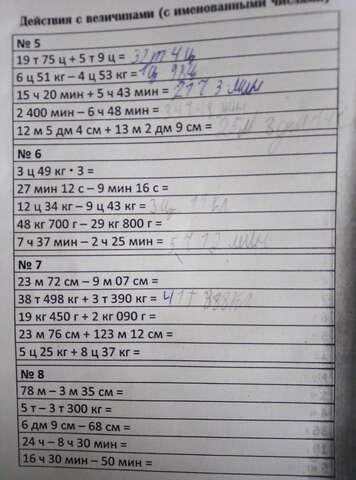 Действия с величинами (с именованными числами)
№ 5
19 т 75 ц + 5 т 9 ц = 32 т 4 ц
6 ц 51 кг – 4 ц 53 кг = 1ц 98
15 ч 20 мин + 5 ч 43 мин = 21 ч 3 мин
2 400 мин – 6 ч 48 мин =
12 м 5 дм 4 см + 13 м 2 дм 9 см = 25м
№ 6
3 ц 49 кг • 3 =
27 мин 12 с – 9 мин 16 с =
12 ц 34 кг – 9 ц 43 кг =
48 кг 700 г – 29 кг 800 г =
7 ч 37 мин – 2 ч 25 мин = 5 ч 12 мин
№ 7
23 м 72 см – 9 м 07 см =
38 т 498 кг + 3 т 390 кг = 41т
19 кг 450 г + 2 кг 090 г =
23 м 76 см + 123 м 12 см =
5 ц 25 кг + 8 ц 37 кг =
№ 8
78 м – 3 м 35 см =
5 т – 3 т 300 кг =
6 дм 9 см – 68 см =
24 ч – 8 ч 30 мин =
16 ч 30 мин – 50 мин =